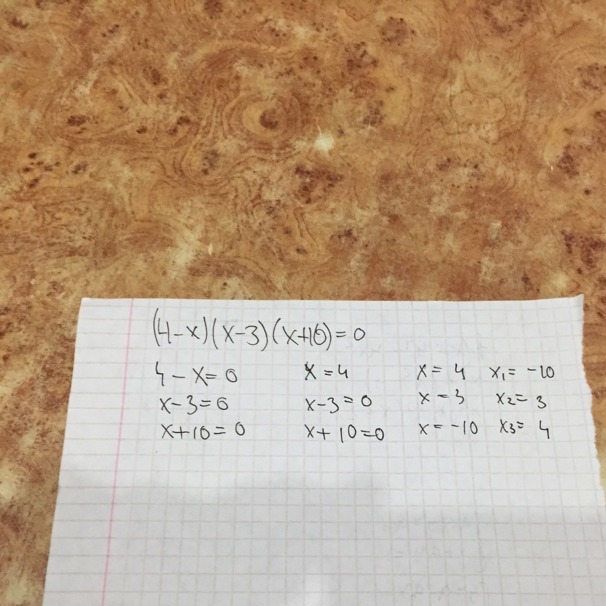 (4-x)(x-3)(x+10)=0
4-x=0 x=4 x=4 x₁=-10
x-3=0 x-3=0 x=3 x₂=3
x+10=0 x+10=0 x=-10 x₃=4